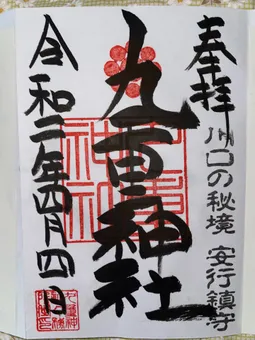 奉拝
川口の秘境 安行鎮守
九重神社
令和二年四月四日